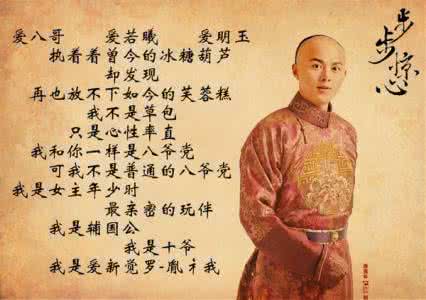 爱八哥 爱若曦 爱明玉
执着着曾今的冰糖葫芦
却发现
再也放不下如今的芙蓉糕
我不是草包
只是心性率直
我和你一样是八爷党
可我不是普通的八爷党
我是女主年少时
最亲密的玩伴
我是辅国公
我是十爷
我是爱新觉罗-胤礻我
步步惊心